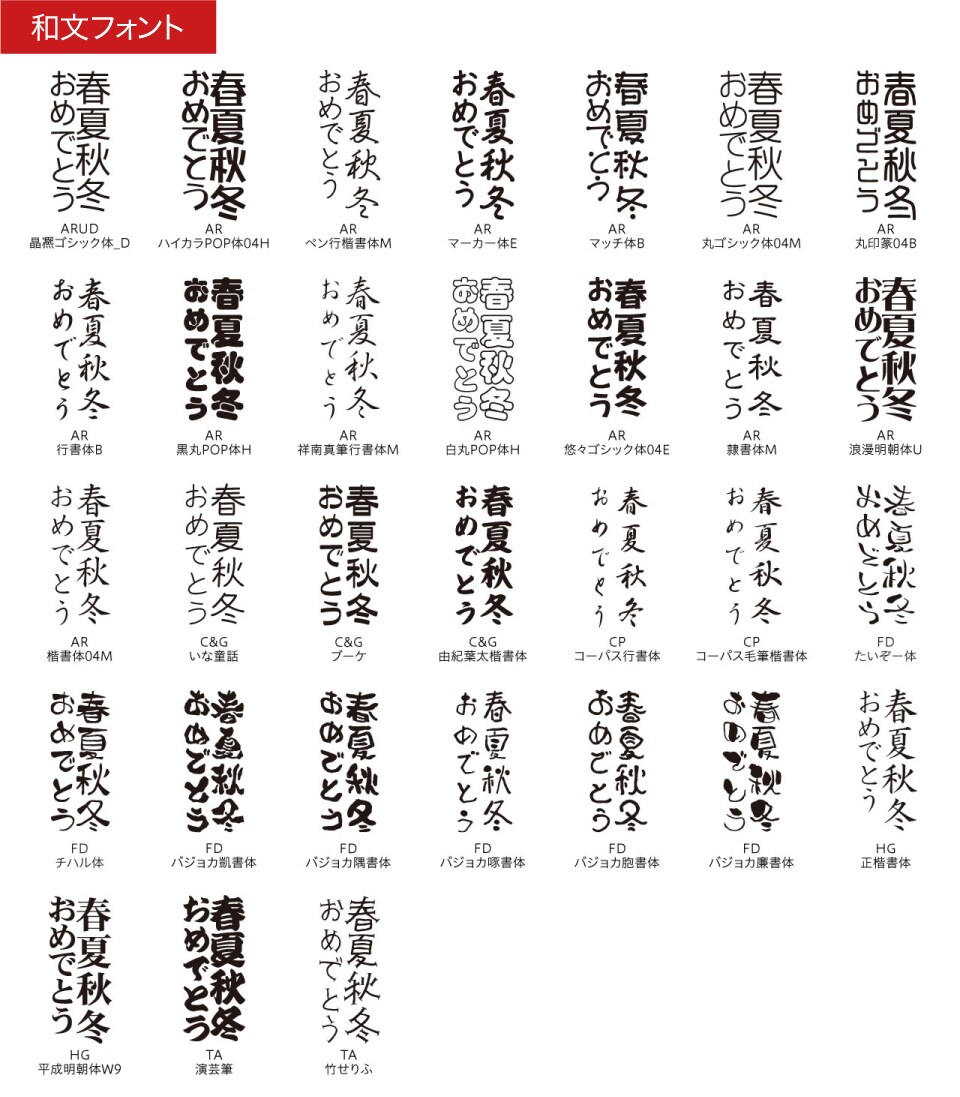 和文フォント
春夏秋冬
おめでとう
ARUD
晶凞ゴシック体_D
春夏秋冬
おめでとう
AR
ハイカラPOP体04H
春夏秋冬
おめでとう
AR
ペン行楷書体M
春夏秋冬
おめでとう
AR
マーカー体E
春夏秋冬
おめでとう
AR
マッチ体B
春夏秋冬
おめでとう
AR
丸ゴシック体04M
春夏秋冬
おめでとう
AR
丸印篆04B
春夏秋冬
おめでとう
AR
行書体B
春夏秋冬
おめでとう
AR
黒丸POP体H
春夏秋冬
おめでとう
AR
祥南真筆行書体M
春夏秋冬
おめでとう
AR
白丸POP体H
春夏秋冬
おめでとう
AR
悠々ゴシック体04E
春夏秋冬
おめでとう
AR
隷書体M
春夏秋冬
おめでとう
AR
浪漫明朝体U
春夏秋冬
おめでとう
AR
楷書体04M
春夏秋冬
おめでとう
C&G
いな童話
春夏秋冬
おめでとう
C&G
ブーケ
春夏秋冬
おめでとう
C&G
由紀葉太楷書体
春夏秋冬
おめでとう
CP
コーパス行書体
春夏秋冬
おめでとう
CP
コーパス毛筆楷書体
春夏秋冬
おめでとう
FD
たいぞー体
春夏秋冬
おめでとう
FD
チハル体
春夏秋冬
おめでとう
FD
バジョカ凱書体
春夏秋冬
おめでとう
FD
バジョカ隅書体
春夏秋冬
おめでとう
FD
バジョカ啄書体
春夏秋冬
おめでとう
FD
バジョカ胞書体
春夏秋冬
おめでとう
FD
バジョカ廉書体
春夏秋冬
おめでとう
HG
正楷書体
春夏秋冬
おめでとう
HG
平成明朝体W9
春夏秋冬
おめでとう
TA
演芸筆
春夏秋冬
おめでとう
TA
竹せりふ